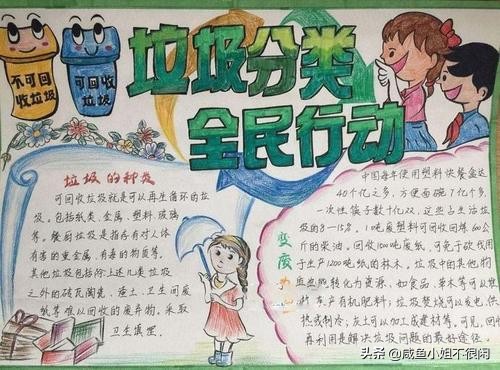 不可回
收垃圾
可回收
垃圾
垃圾分类
全民行动
垃圾的种类
可回收垃圾就是可以再生循环的垃
圾。包括纸类、金属、塑料、玻璃
等。餐厨垃圾是指存有对人体
有害的重金属、有毒的物质等。
其他垃圾包括除上述几类垃圾
之外的砖瓦陶瓷、渣土、卫生间废
纸等难以回收的废弃物，采取
卫生填埋。
变废
中国每年使用塑料快餐盒达
40个亿之多，方便面碗7亿个多，
一次性筷子数十亿双，这些占生活垃
圾的8—15%。1吨废塑料可回收回炼600公
斤的柴油。回收1500吨废纸，可免于砍伐用
于生产1200吨纸的林木。垃圾中的其他物
能转化为资源，如食品、草木等可以堆
肥，生产有机肥料；垃圾焚烧可以发电、供
热或制冷；灰土可以加工成建材等。可见，回收
再利用是解决垃圾问题的最好途径。
头条 @咸鱼小姐不很闲